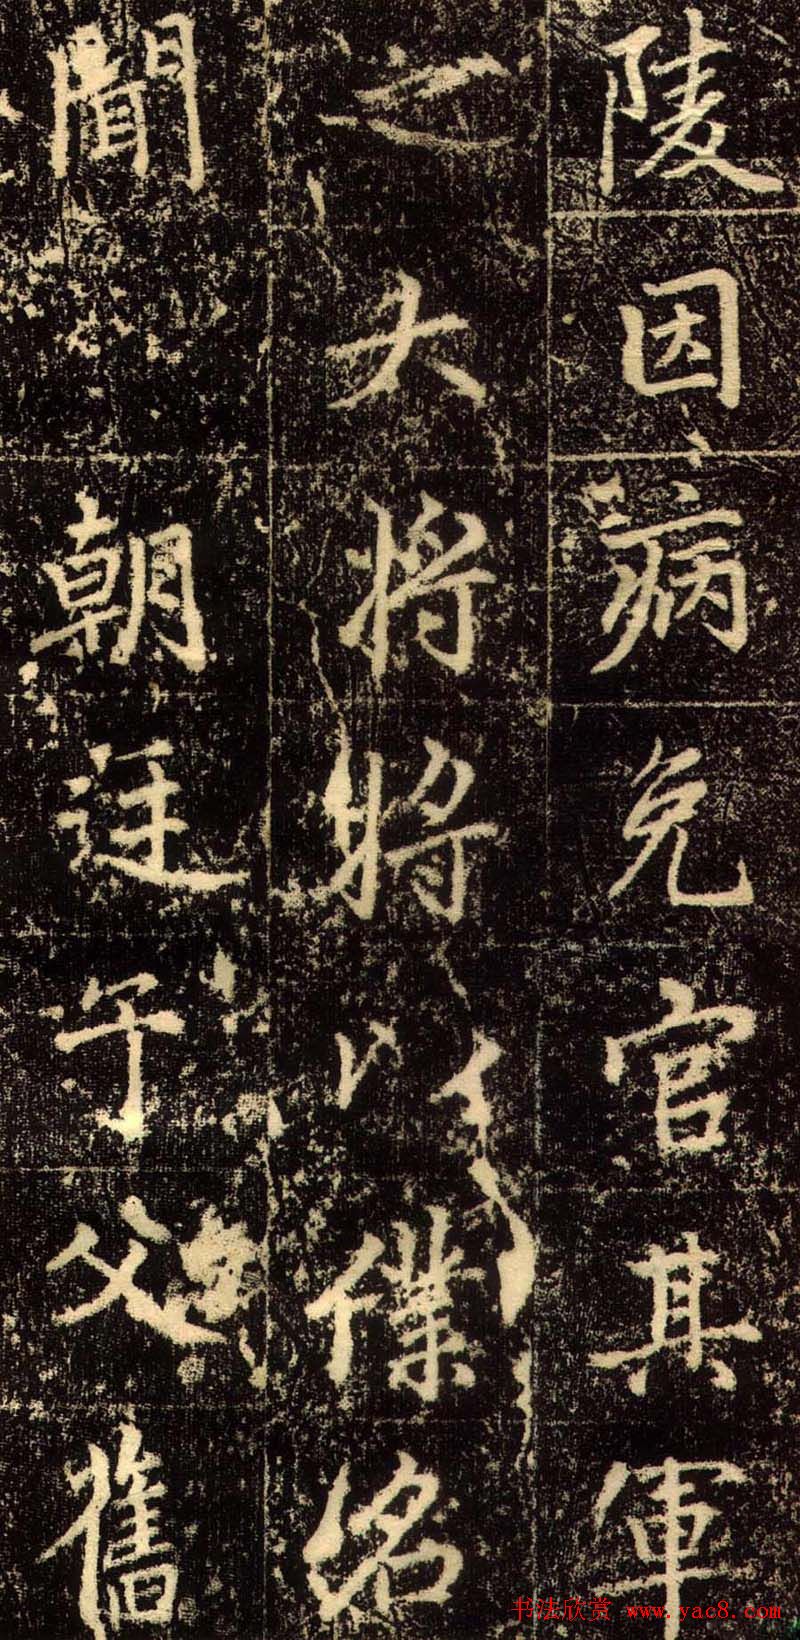 陵因病免官其軍
大將將以洺
聞朝廷于父舊
书法欣赏 www.yac8.com